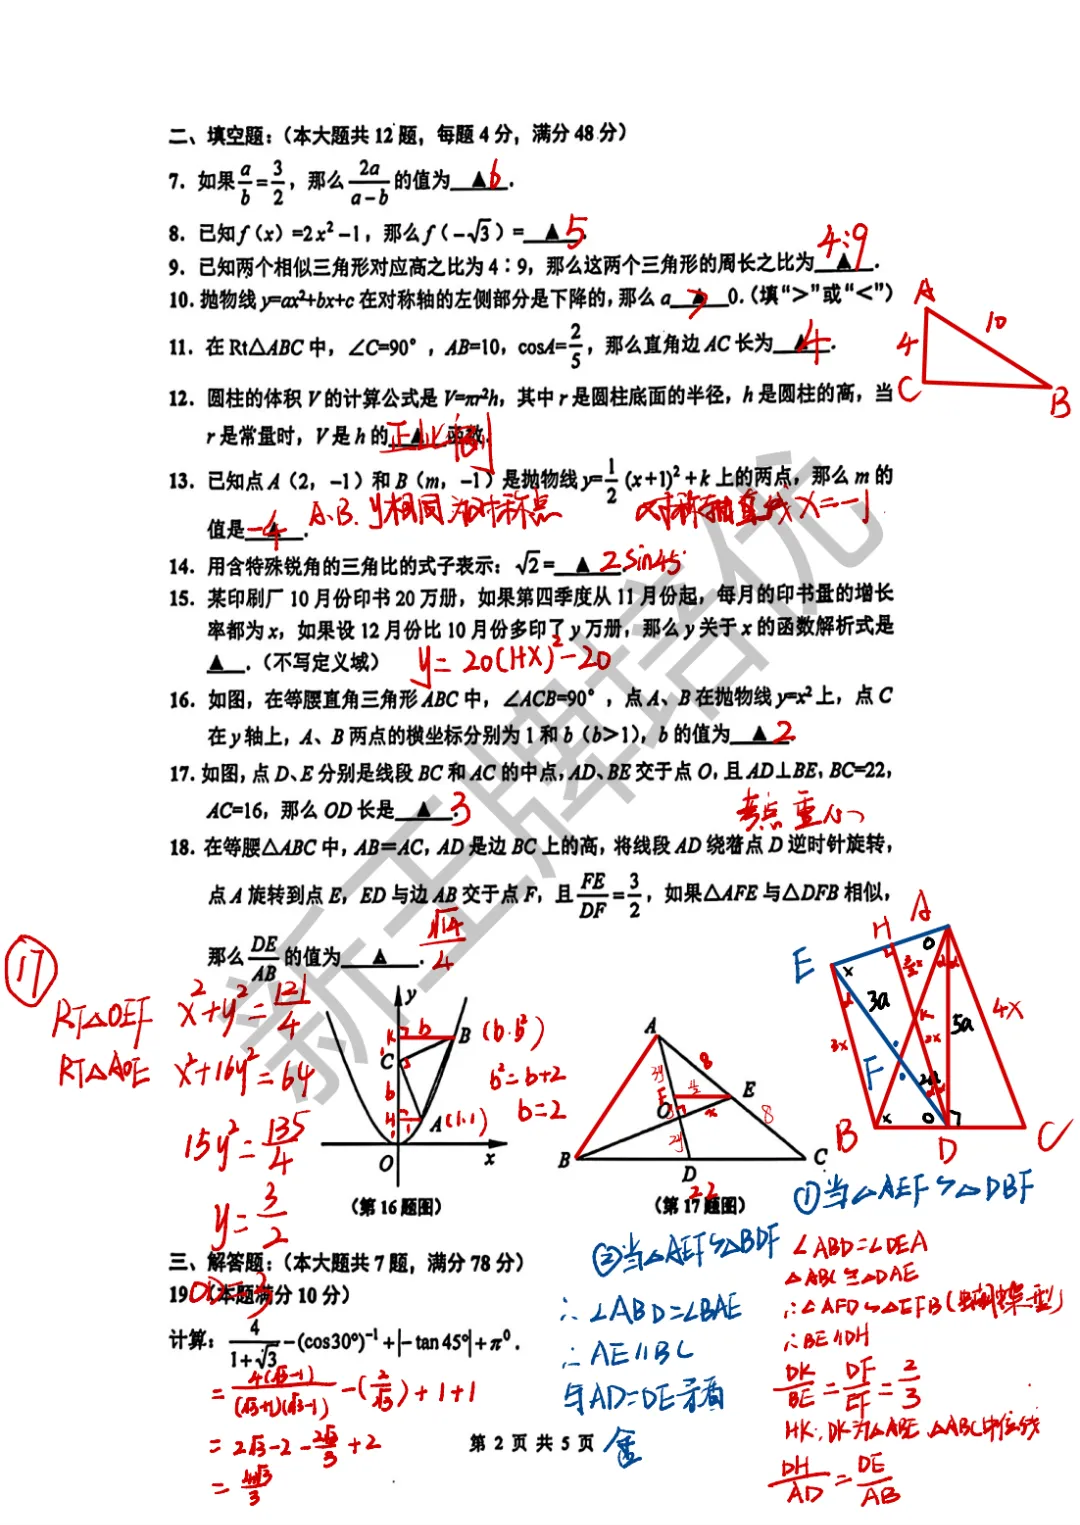 二、填空题：（本大题共12题，每题4分，满分48分）
7. 如果a/b=3/2，那么2a/(a-b)的值为 ▲ . 6
8. 已知f(x)=2x²-1，那么f(-√3)= ▲ . 5
9. 已知两个相似三角形对应高之比为4∶9，那么这两个三角形的周长之比为 ▲ . 4:9
10. 抛物线y=ax²+bx+c在对称轴的左侧部分是下降的，那么a ▲ 0.（填“>”或“<”） >
11. 在Rt△ABC中，∠C=90°，AB=10，cosA=2/5，那么直角边AC长为 ▲ . 4
A
10
4
C
B
12. 圆柱的体积V的计算公式是V=πr²h，其中r是圆柱底面的半径，h是圆柱的高，当
r是常量时，V是h的 ▲ 函数. 正比例
13. 已知点A（2，-1）和B（m，-1）是抛物线y=1/2(x+1)²+k上的两点，那么m的
值是 ▲ . -4
A.B.y相同为对称点 对称轴直线x=-1
14. 用含特殊锐角的三角比的式子表示：√2= ▲ . 2sin45°
15. 某印刷厂10月份印书20万册，如果第四季度从11月份起，每月的印书量的增长
率都为x，如果设12月份比10月份多印了y万册，那么y关于x的函数解析式是
▲ .（不写定义域） y=20(1+x)²-20
16. 如图，在等腰直角三角形ABC中，∠ACB=90°，点A、B在抛物线y=x²上，点C
在y轴上，A、B两点的横坐标分别为1和b（b>1），b的值为 ▲ 2
17. 如图，点D、E分别是线段BC和AC的中点，AD、BE交于点O，且AD⊥BE，BC=22，
AC=16，那么OD长是 ▲ . 3
考点重心
18. 在等腰△ABC中，AB=AC，AD是边BC上的高，将线段AD绕着点D逆时针旋转，
点A旋转到点E，ED与边AB交于点F，且FE/DF=3/2，如果△AFE与△DFB相似，
那么DE/AB的值为 ▲ . √14/4
17
RT△OEF x²+y²=121/4
RT△AOE x²+16y²=64
15y²=135/4
y=3/2
OD=3
y
b
B (b·b²)
C
b
A (1,1)
O
x
b²=b+2
b=2
（第16题图）
A
8
E
8
O
x
B
D
C
22
（第17题图）
A
H
E
3a
5a
4x
3x
2x
F
2a
B
D
C
①当△AEF∽△DBF
∠ABD=∠DEA
△ABC≌△DAE
∴△AFD∽△EFB（蝴蝶型）
∴BE∥DH
DK/BE=DF/EF=2/3
HK,DK为△ABE △ABC中位线
DH/AD=DE/AB
②当△AEF∽△BDF
∴∠ABD=∠BAE
∴AE∥BC
与AD=DE矛盾
舍
三、解答题：（本大题共7题，满分78分）
19.（本题满分10分）
计算：4/(1+√3)-(cos30°)⁻¹+|-tan45°|+π⁰.
=4(√3-1)/(√3+1)(√3-1)-(2/√3)+1+1
=2√3-2-2√3/3+2
=4√3/3
第 2 页 共 5 页
新王牌培优